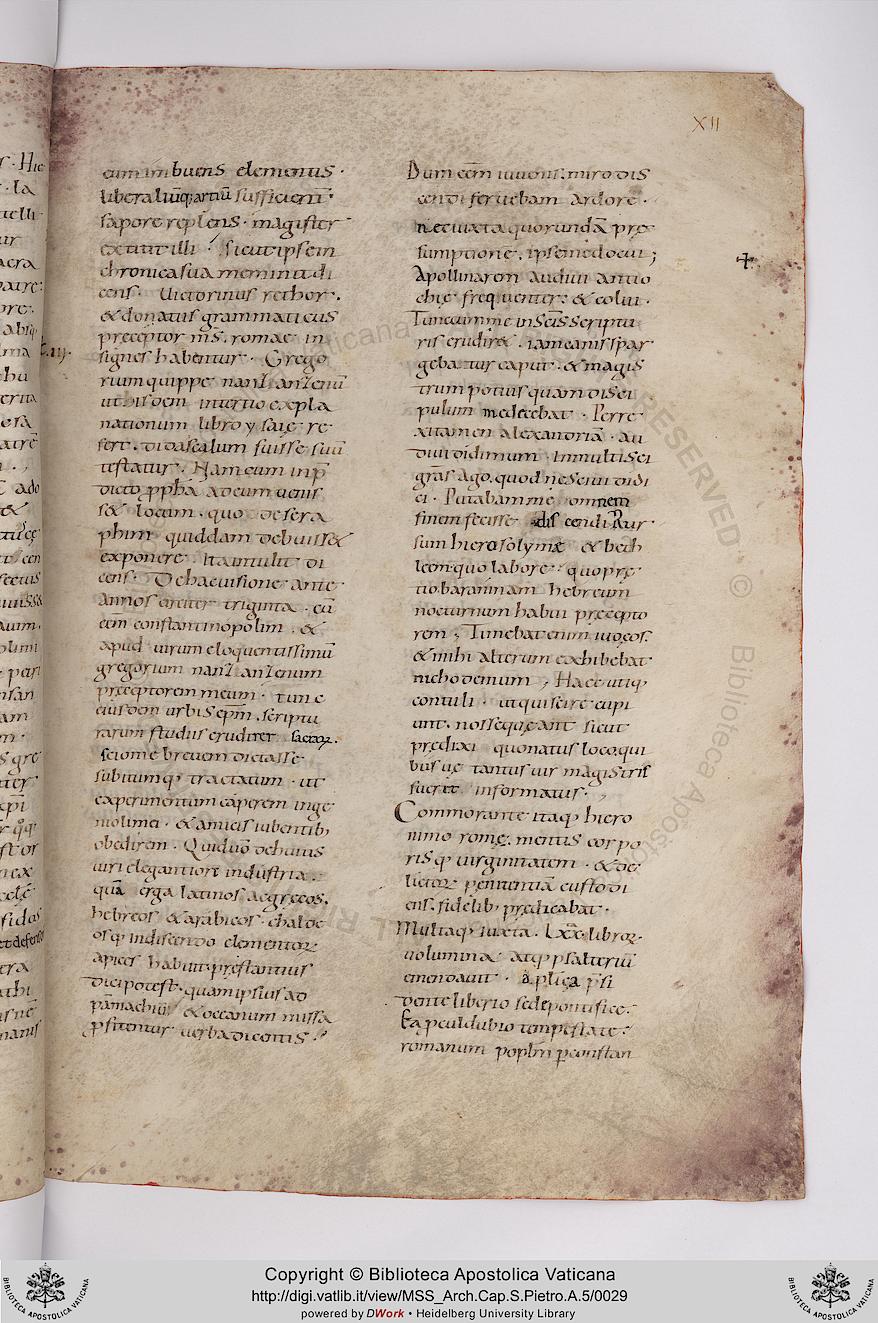 XII
eum imbuens elementis ·
liberaliūq; artiū sufficienti
sapore replens · magister
extitit illi · sicut ipse in
chronica sua meminit di
cens · Victorinus rethor ·
& donatus grammaticus
preceptor m̄s · romae in
signes habentur · Grego
rium quippe nanzanzenū
ut bisdem in tertio expla
nationum libro ysaie re
fert · didascalum fuisse suū
testatur · Nam cum in p̄
dicto ꝓph̄a adeum uenis
s& locum · quo de sera
phim quiddam debuiss&
exponere · Ita intulit di
cens · De hac uisione ante
annos circiter triginta · cū
eēm constantinopolim · &
apud uirum eloquentissimū
gregorium nanzanzenum
preceptorem meum · tunc
eiusdem urbis ep̄m · scriptu
rarum studiis erudirer sacrarꝝ ·
scio me breuem dictasse
subitumq; tractatum · ut
experimentum caperem inge
nioli mei · & amicis iubentib;
obedirem · Quid uō de huius
uiri elegantiore industria ·
quā erga latinos ac grecos ·
hebreos & arabicos · chalde
osq; in discendo elementorꝝ
apices habuit · prestantius
dici potest · quam ipsius ad
pāmachiū & oceanum missa
ꝓsitentur uerba dicentis ·
Dum eēm iuuenis · miro dis
cendi feruebam ardore ·
nec iuxta quorundā pre
sumptione · ipse me docui ;
Apollinarem audiui antio
chie frequenter · & colui ·
Tunc cum me in scīs scriptu
ris erudir& · iam canis spar
gebatur caput · & magis
trum potius quam disci
pulum me decebat · Perre
xi tamen alexandriā · au
diui didimum · In multis ei
grās ago · quod nesciui didi
ci · Putabam me omnem
finem fecisse discendi Rur
sum hierosolyme & beth
leem quo labore · quo pre
tio baraninam hebreum
nocturnum habui precepto
rem ; Timebat enim iudeos ·
& mihi alterum exhibebat
nichodemum ; Haec utiq;
contuli · ut qui scire cupi
unt · nosse queant sicut
predixi quo natus loco · qui
busue tantus uir magistris
fuerit informatus ·
Commorante itaq; hiero
nimo rome · mentis corpo
risq; uirginitatem · & de
lictorꝝ penitentiā custodi
ens · fidelib; predicabat ·
Multaq; iuxta · Lxx · librorꝝ
uolumina atq; psalteriū
emendauit · aplica p̄si
dente liberio sede pontifice ·
Ea ꝓculdubio tempestate ·
romanum popl̄m ꝑ constan
Copyright © Biblioteca Apostolica Vaticana
http://digi.vatlib.it/view/MSS_Arch.Cap.S.Pietro.A.5/0029
powered by DWork • Heidelberg University Library